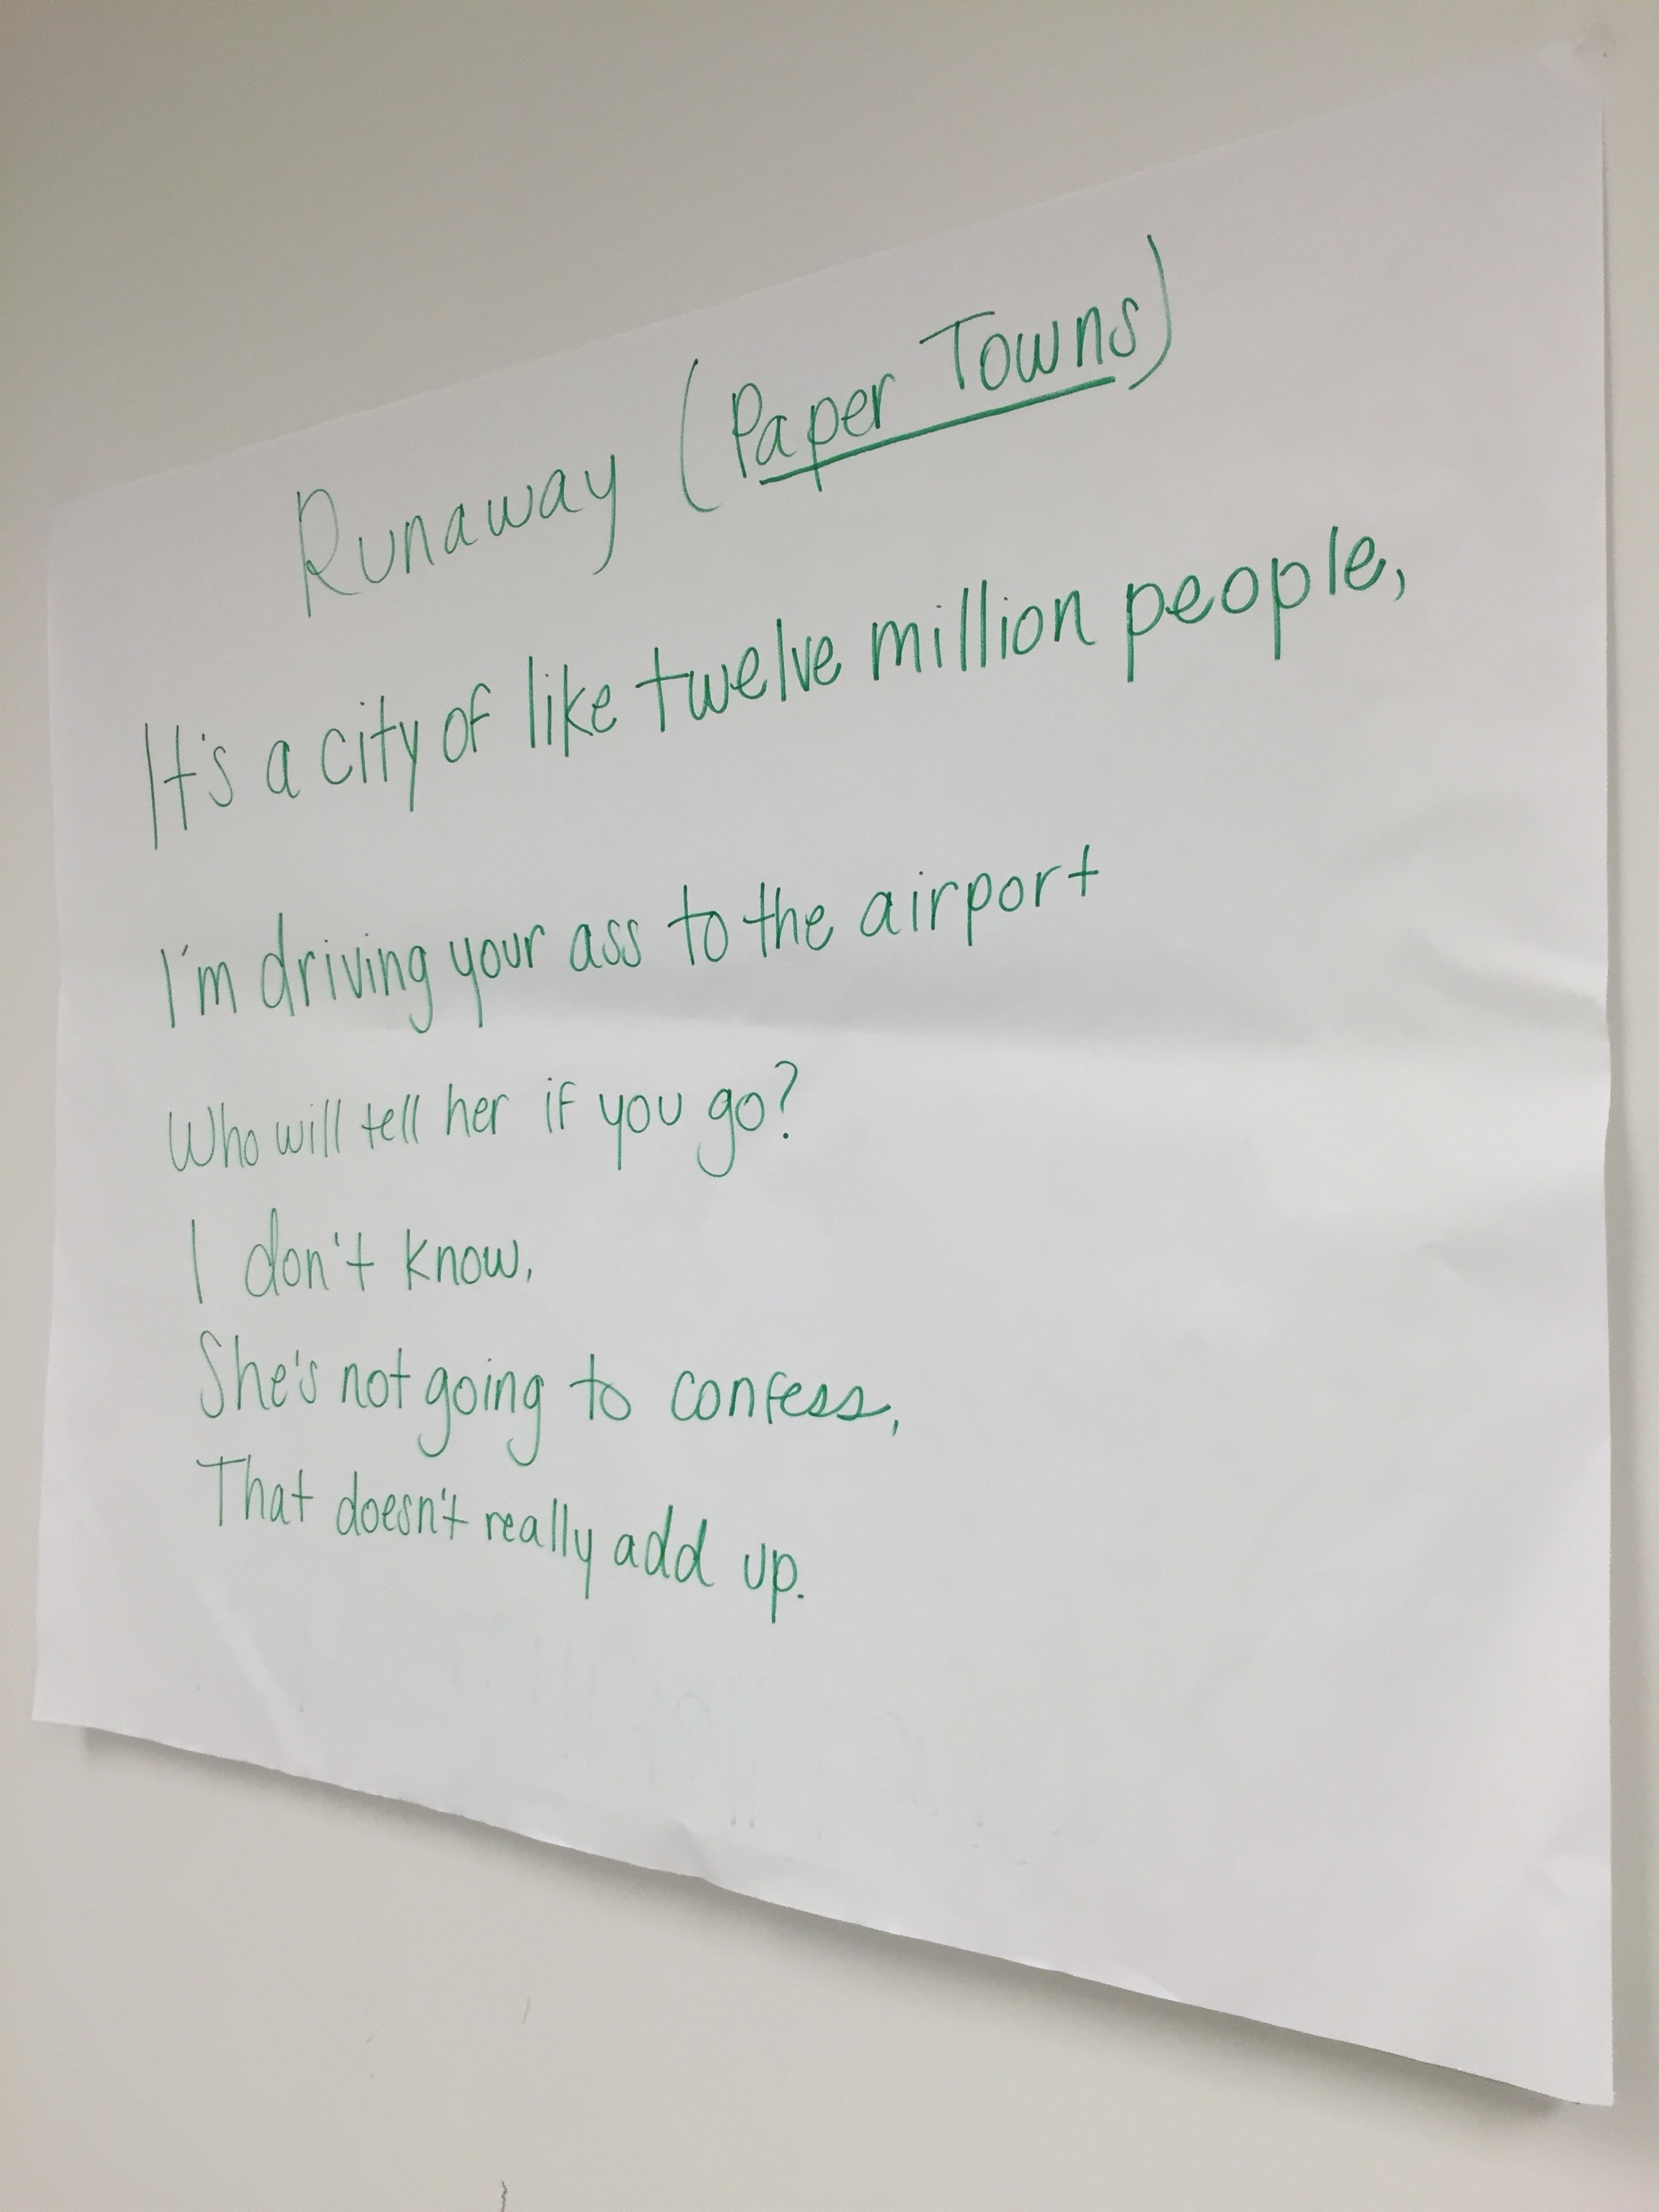 Runaway (Paper Towns)
It's a city of like twelve million people,
I'm driving your ass to the airport
Who will tell her if you go?
I don't know,
She's not going to confess,
That doesn't really add up.